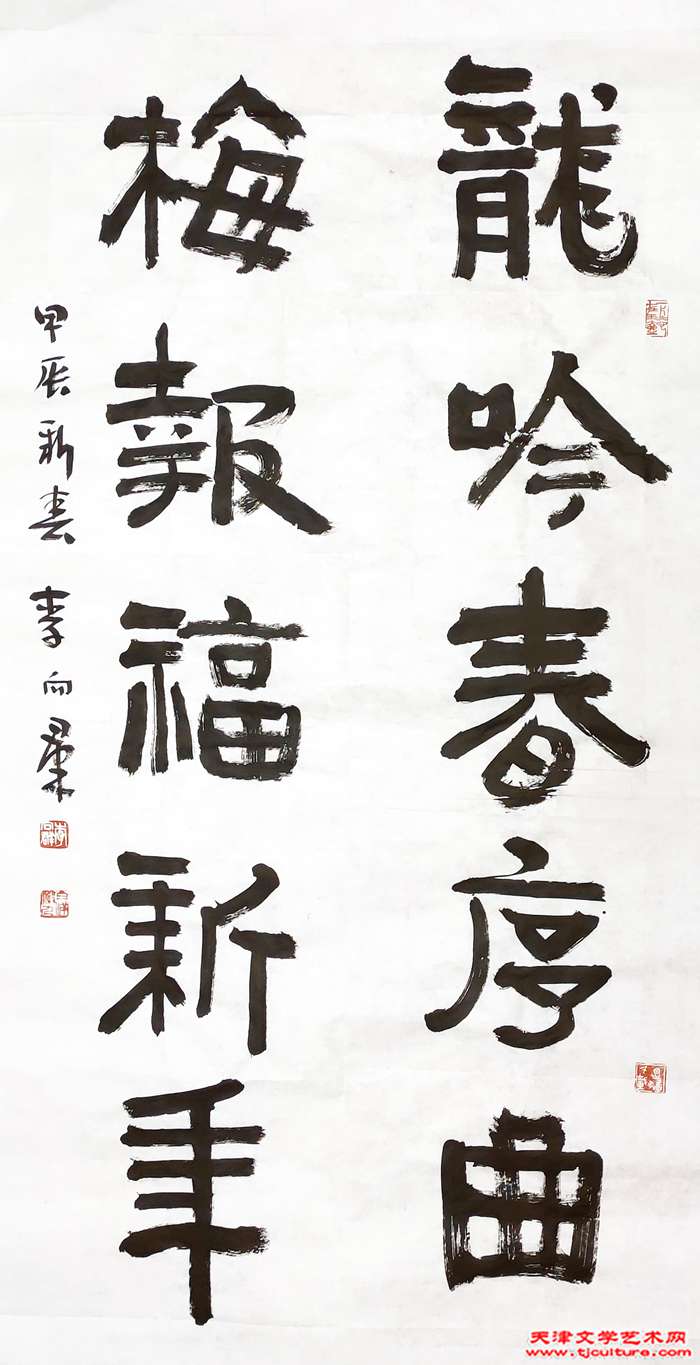 龍吟春序曲
梅報福新年
甲辰新春 李向羣
天津文学艺术网
www.tjculture.com